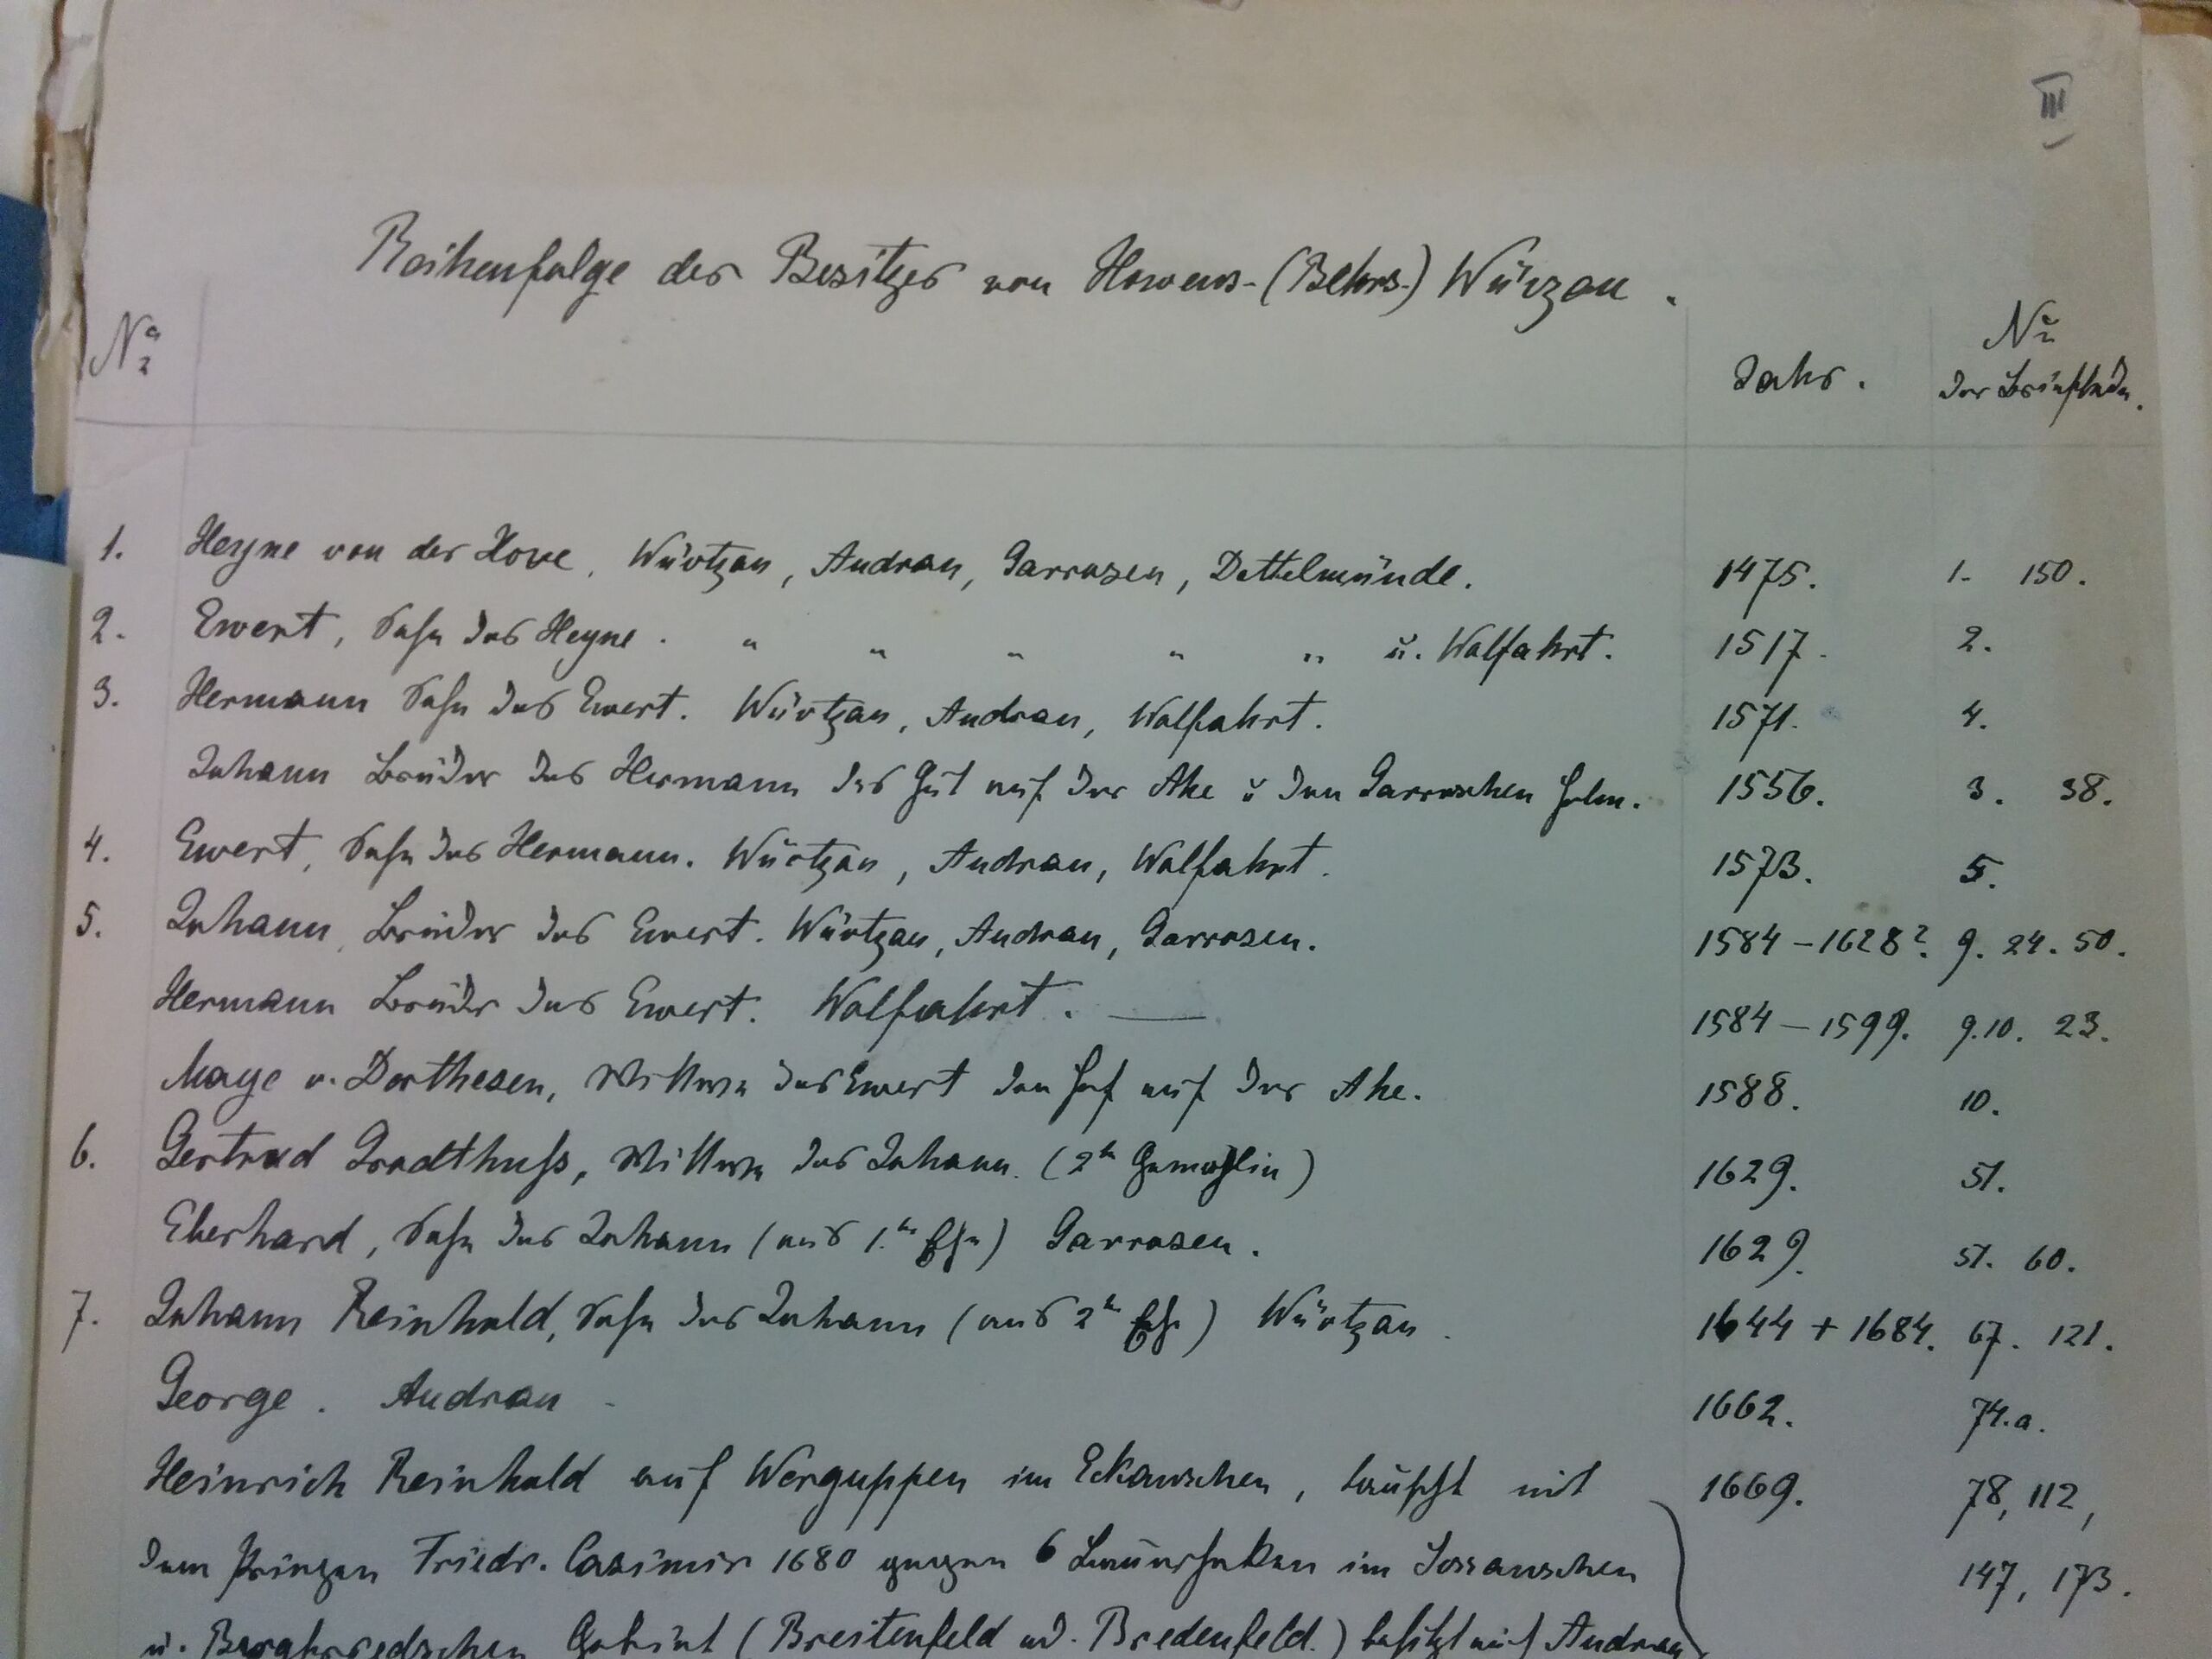 III
Reihenfolge der Besitzer von Howens-(Behrs-) Würzau.
No
Jahr.
No
der Brieflade.
1. Heyne von der Hove. Würtzau, Audrau, Garrosen, Dettelmünde. 1475. 1. 150.
2. Ewert, Sohn des Heyne. " " " " " u. Walfahrt. 1517. 2.
3. Hermann Sohn des Ewert. Würtzau, Audrau, Walfahrt. 1571. 4.
Johann Bruder des Hermann das Gut auf der Ahe u den Garroschen Holm. 1556. 3. 38.
4. Ewert, Sohn des Hermann. Würtzau, Audrau, Walfahrt. 1573. 5.
5. Johann, Bruder des Ewert. Würtzau, Audrau, Garrosen. 1584-1628? 9. 24. 50.
Hermann Bruder des Ewert. Walfahrt. — 1584-1599. 9.10. 23.
Maye v. Dorthesen, Wittwe des Ewert den Hof auf der Ahe. 1588. 10.
6. Gertrud Grodthuss, Wittwe des Johann. (2te Gemahlin) 1629. 51.
Eberhard, Sohn des Johann (aus 1.ter Ehe) Garrosen. 1629. 51. 60.
7. Johann Reinhold, Sohn des Johann (aus 2ter Ehe) Würtzau. 1644 + 1684. 67. 121.
George. Audrau 1662. 74.a.
Heinrich Reinhold auf Werguppen im Eckauschen, tauscht mit 1669. 78, 112,
dem Prinzen Friedr. Casimir 1680 gegen 6 Bauerhaken im 147, 173.
u. Gebiet (Breitenfeld od. Bredenfeld.) besitzt auch Audrau